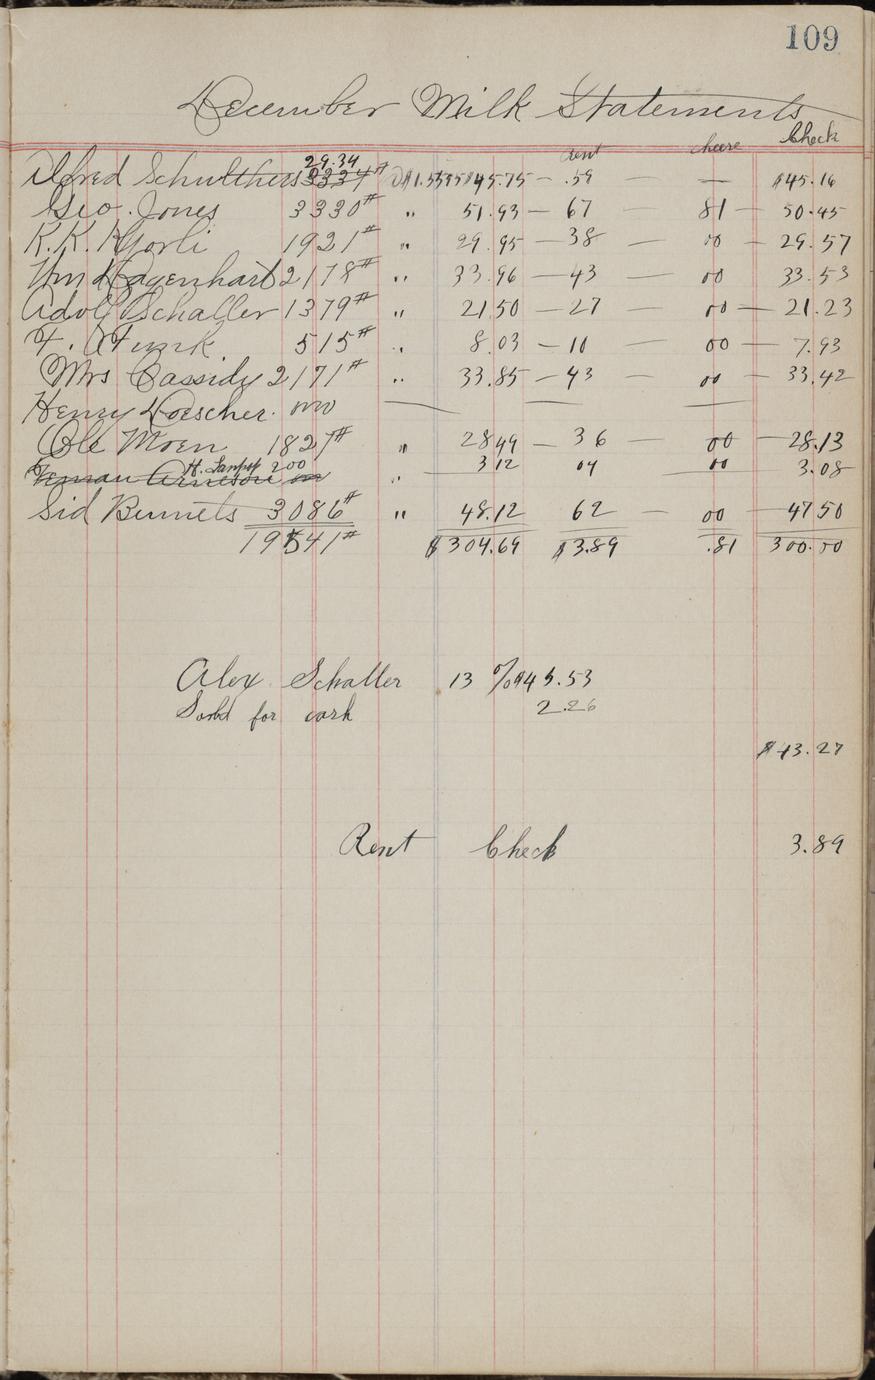 109
December Milk Statements
rent cheese Check
29.34
Alfred Schulthers 3334# @ $1.5595 $45.75 — .59 — $45.16
Geo. Jones 3330# " 51.93 — 67 81 — 50.45
K.K. 1921# " 29.95 — 38 — 00 — 29.57
Wm Hagenhart 2178# " 33.96 — 43 — 00 33.53
Adolf Schaller 1379# " 21.50 — 27 — 00 — 21.23
F. Funk 515# " 8.03 — 10 00 — 7.93
Mrs Cassidy 2171# " 33.85 — 43 00 — 33.42
Henry Loescher. 000 — — —
Ole Moen 1827# " 28.49 — 36 00 — 28.13
H. Lampop 200 " 3 12 04 00 3.08
Arneson
Sid Bennets 3086# " 48.12 62 — 00 — 47 50
19541# $304.69 $3.89 .81 300.00
Alex Schaller 13 % $45.53
Sold for cash 2.26
$43.27
Rent Check 3.89